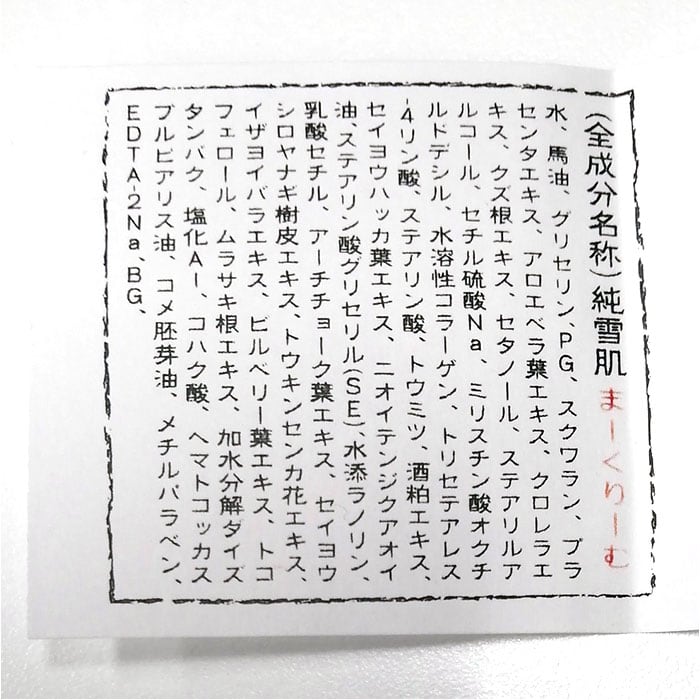 (全成分名称)純雪肌まーくりーむ
水、馬油、グリセリン、PG、スクワラン、プラ
センタエキス、アロエベラ葉エキス、クロレラエ
キス、クズ根エキス、セタノール、ステアリルア
ルコール、セチル硫酸Na、ミリスチン酸オクチ
ルドデシル、水溶性コラーゲン、トリセテアレス
-4リン酸、ステアリン酸、トウミツ、酒粕エキス、
セイヨウハッカ葉エキス、ニオイテンジクアオイ
油、ステアリン酸グリセリル(SE)、水添ラノリン、
乳酸セチル、アーチチョーク葉エキス、セイヨウ
シロヤナギ樹皮エキス、トウキンセンカ花エキス、
イザヨイバラエキス、ビルベリー葉エキス、トコ
フェロール、ムラサキ根エキス、加水分解ダイズ
タンパク、塩化Al、コハク酸、ヘマトコッカス
プルビアリス油、コメ胚芽油、メチルパラベン、
EDTA-2Na、BG、